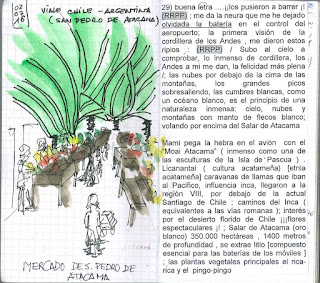 02
03
16
VIAJE CHILE - ARGENTINA
(SAN PEDRO DE ATACAMA)
MERCADO DE S. PEDRO DE
ATACAMA
29) buena letra ....¡¡los pusieron a barrer ¡!
(RRPP) ; me da la neura que me he dejado
olvidada la batería en el control del
aeropuerto; la primera visión de la
cordillera de los Andes , me dieron estos
ripios : (RRPP) / Subo al cielo a
comprobar, lo inmenso de cordillera, los
Andes a mi me dan, la felicidad más plena
/; las nubes por debajo de la cima de las
montañas, los grandes picos
sobresaliendo, las cumbres blancas, como
un océano blanco, es el principio de una
naturaleza inmensa: cielo, nubes y
montañas con manto de flecos blanco;
volando por encima del Salar de Atacama

Mami pega la hebra en el avión con el
"Moai Atacama" ( inmenso como una de
las esculturas de la Isla de Pascua ) .
Licanantai ( cultura atacameña) [etnia
atacameña] caravanas de llamas que iban
al Pacifico, influencia inca, llegaron a la
región VIII, por debajo de la actual
Santiago de Chile ; caminos del Inca (
equivalentes a las vías romanas ); interés
por el desierto florido de Chile ¡¡¡flores
espectaculares ¡! ; Salar de Atacama (oro
blanco) 350.000 hectáreas , 1400 metros
de profundidad , se extrae litio [compuesto
esencial para las baterías de los móviles ]
; las plantas vegetales principales el rica-
rica y el pingo-pingo